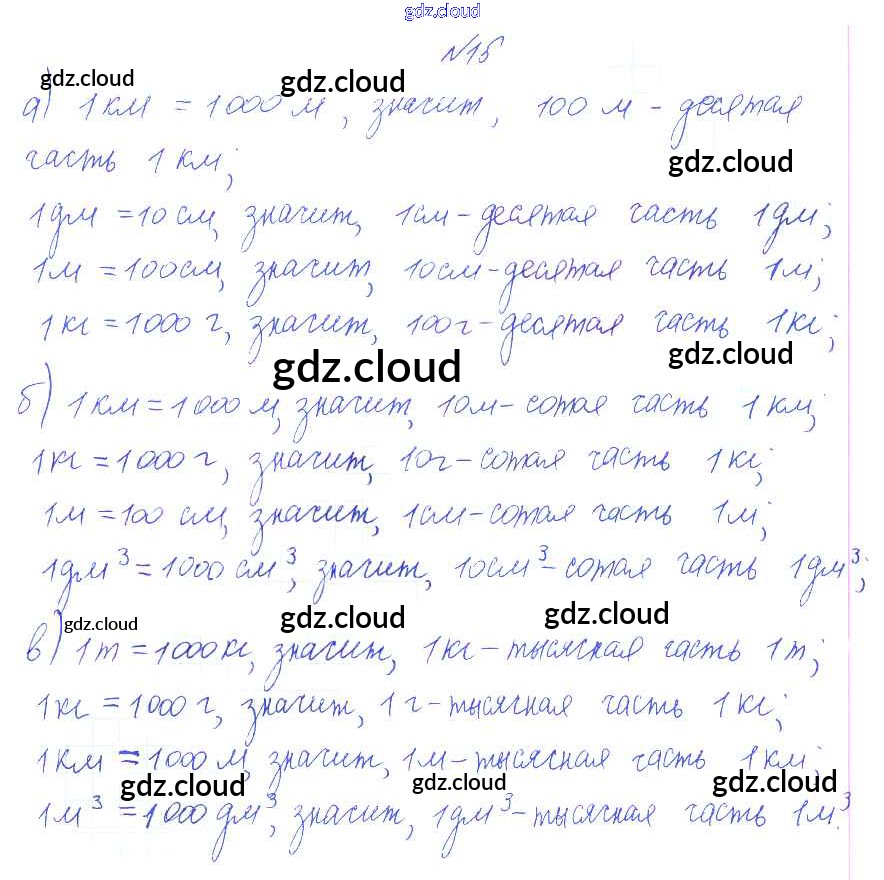 gdz.cloud
№15
gdz.cloud gdz.cloud gdz.cloud
а) 1 км = 1000 м, значит, 100 м - десятая
часть 1 км;
gdz.cloud
1дм = 10 см, значит, 1см - десятая часть 1дм;
1м = 100см, значит, 10см - десятая часть 1м;
1 кг = 1000 г, значит, 100г - десятая часть 1кг;
gdz.cloud gdz.cloud
б) 1 км = 1000 м, значит, 10м - сотая часть 1 км;
1кг = 1000 г, значит, 10г - сотая часть 1кг;
1м = 100 см, значит, 1см - сотая часть 1м;
1дм³ = 1000 см³, значит, 10см³ - сотая часть 1дм³;
gdz.cloud gdz.cloud gdz.cloud
в) 1 т = 1000кг, значит, 1кг - тысячная часть 1т;
1кг = 1000 г, значит, 1г - тысячная часть 1кг;
1км = 1000 м, значит, 1м - тысячная часть 1км;
gdz.cloud gdz.cloud gdz.cloud
1м³ = 1000 дм³, значит, 1дм³ - тысячная часть 1м³.